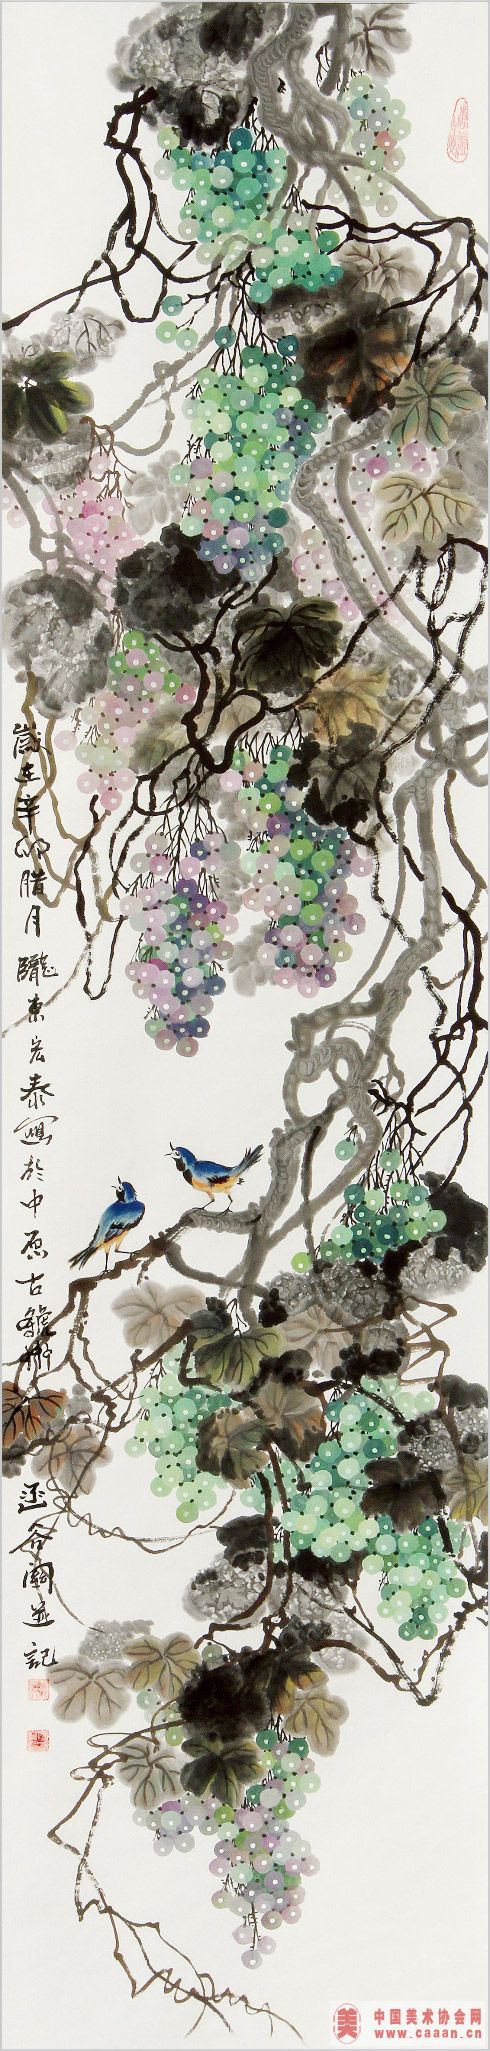 歲在辛卯腊月隴東宏泰寫於中原古虢州
函谷關並記
中国美术协会网
www.caaan.cn